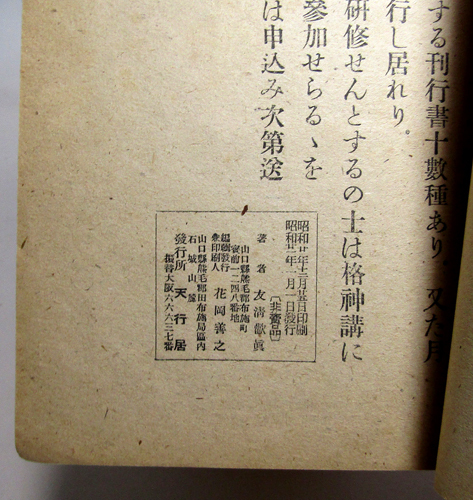 する刊行書十數種あり、又た月
行し居れり。
研修せんとするの士は格神講に
參加せらるゝを
は申込み次第送
昭和廿年十二月 日印刷
昭和廿一年 月一日發行
〔非賣品〕
著者 友清歡眞
山口縣熊毛郡布施町
一二四八番地
編輯發行
兼印刷人
花岡善之
山口縣熊毛郡田布施局區内
石城山
發行所 天行居
振替大阪六六六三七番